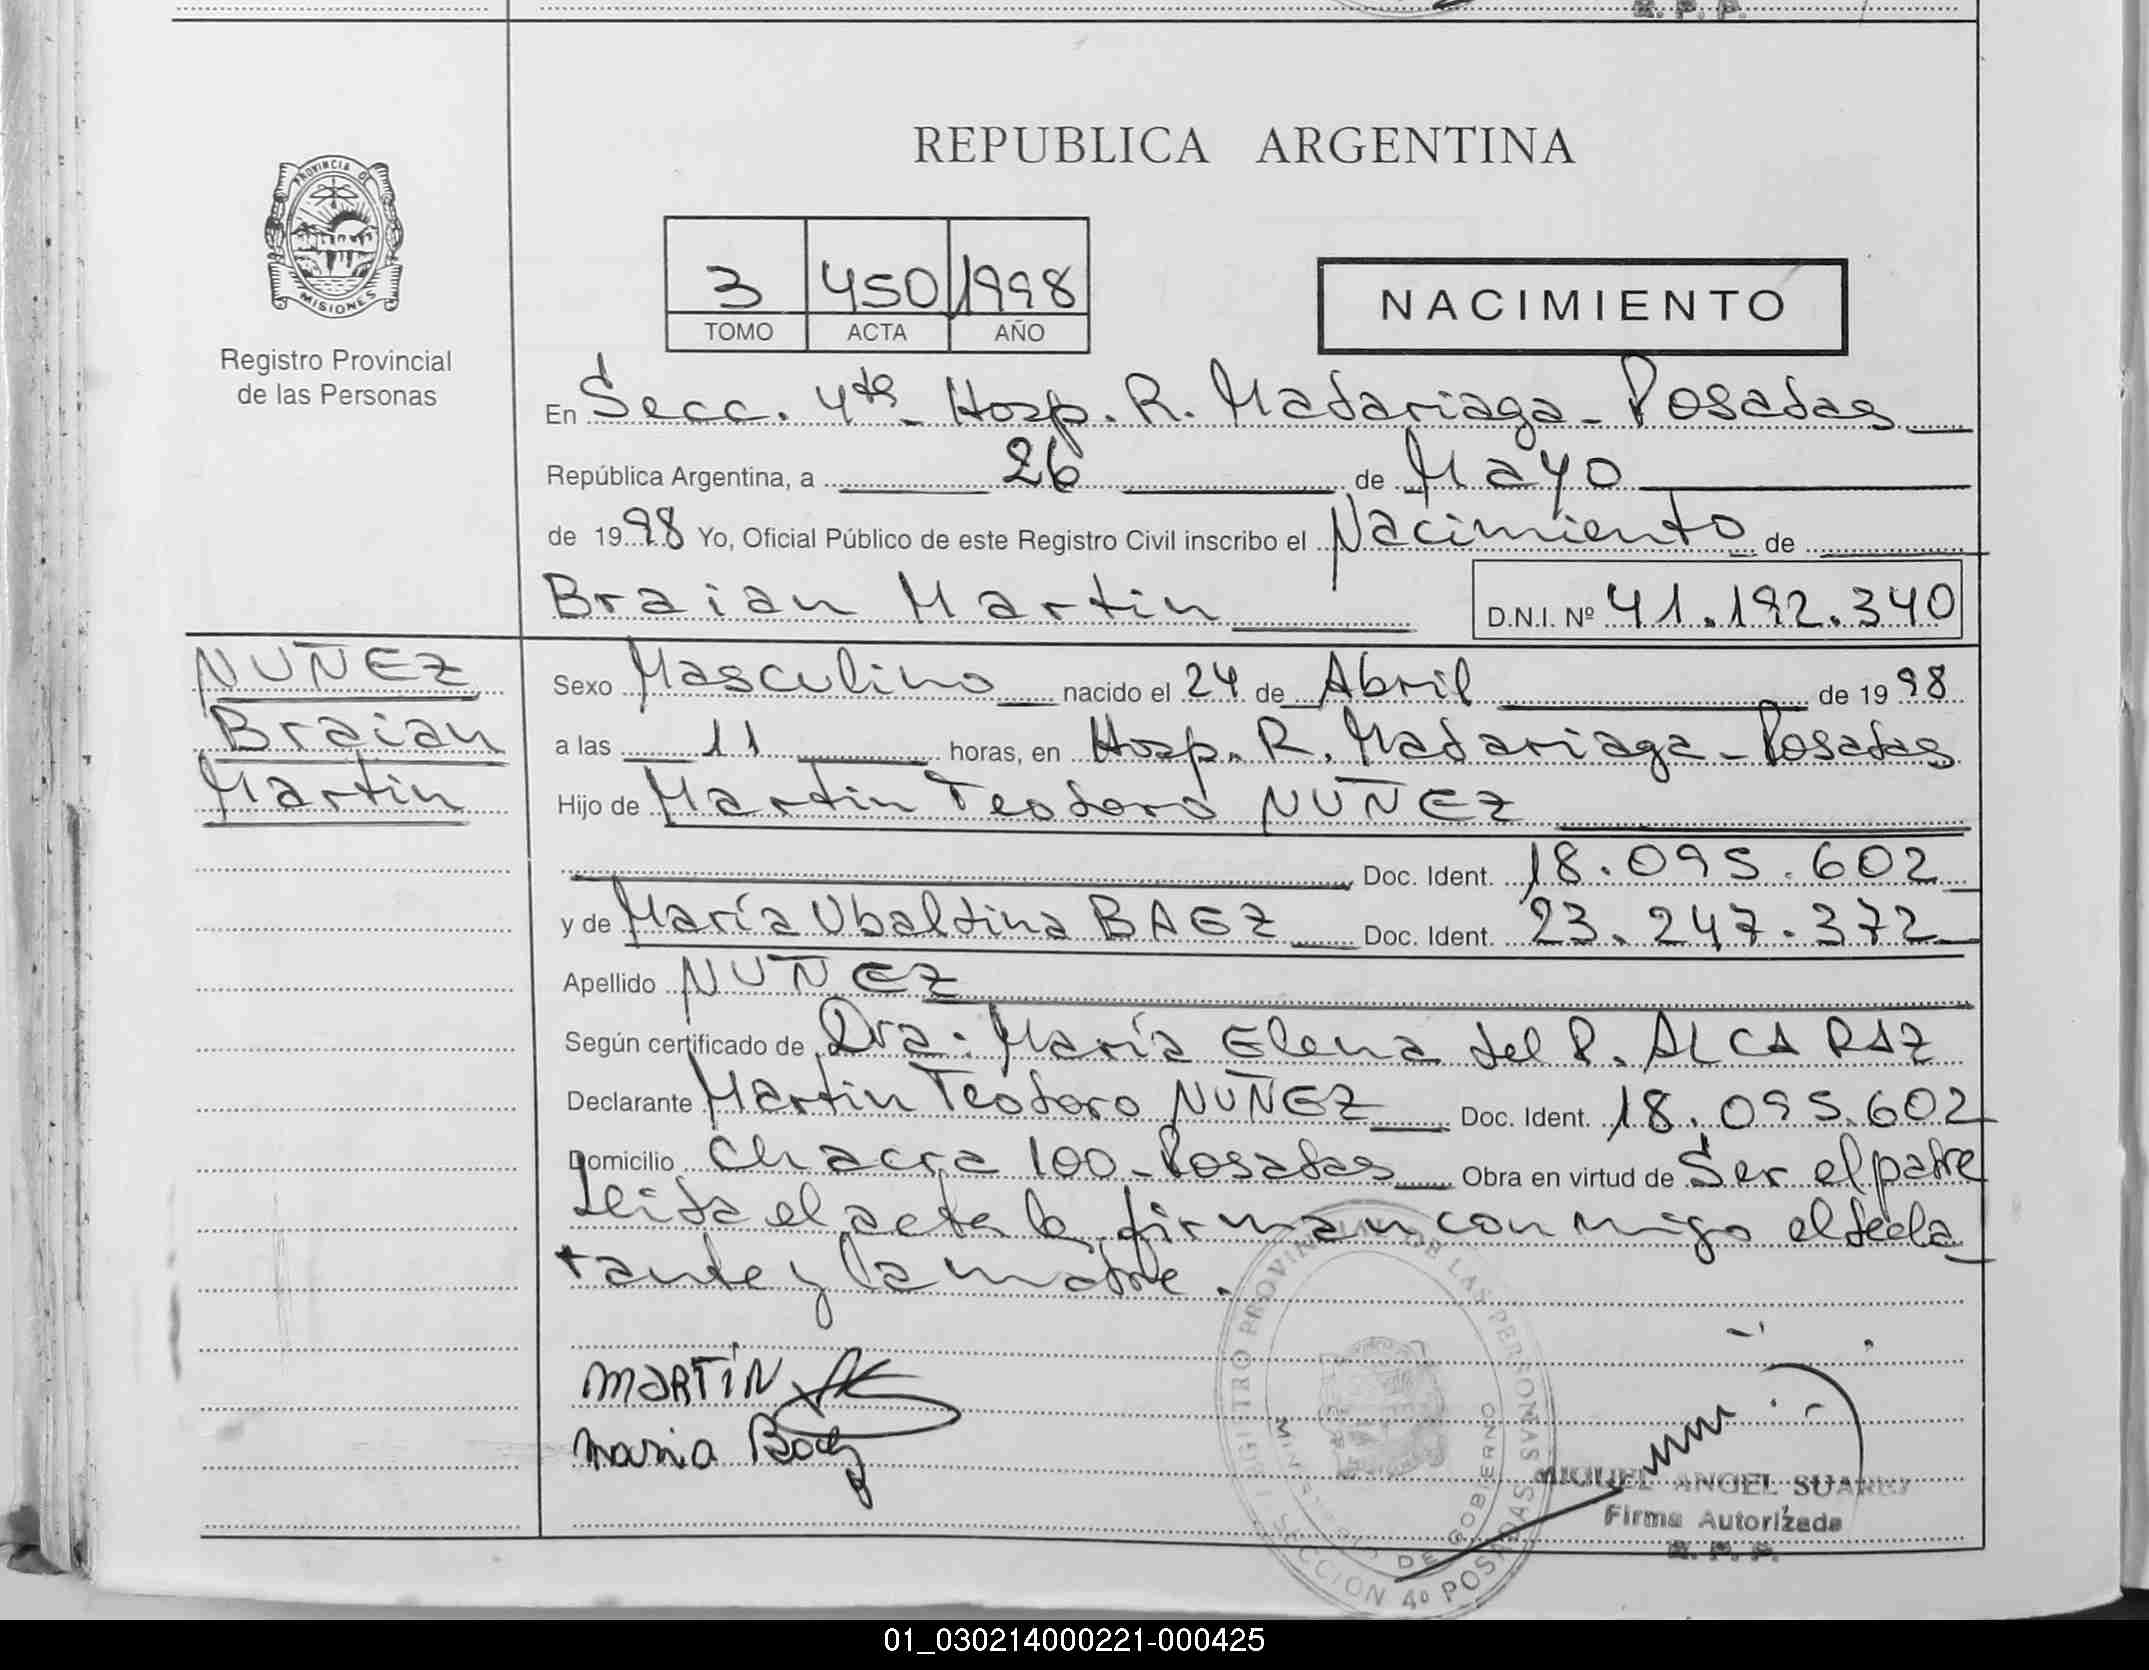 R. P. P.
REPUBLICA ARGENTINA
PROVINCIA DE
MISIONES
Registro Provincial
de las Personas
3 450 1998
TOMO ACTA AÑO
NACIMIENTO
En Secc. 4ta - Hosp. R. Madariaga - Posadas
República Argentina, a 26 de Mayo
de 1998 Yo, Oficial Público de este Registro Civil inscribo el Nacimiento de
Braian Martin D.N.I. Nº 41.192.340
NUÑEZ
Braian
Martin
Sexo Masculino nacido el 24 de Abril de 1998
a las 11 horas, en Hosp. R. Madariaga - Posadas
Hijo de Martin Teodoro NUÑEZ
Doc. Ident. 18.095.602
y de María Ubaldina BAEZ Doc. Ident. 23.247.372
Apellido NUÑEZ
Según certificado de Dra. María Elena del P. ALCARAZ
Declarante Martin Teodoro NUÑEZ Doc. Ident. 18.095.602
Domicilio Chacra 100 - Posadas Obra en virtud de Ser el padre
Leida el acta la firman conmigo el decla
rante y la madre.
MARTIN
Maria Baez
REGISTRO PROVINCIAL DE LAS PERSONAS
MINISTERIO DE GOBIERNO
SECCION 4º POSADAS
MIGUEL ANGEL SUAREZ
Firma Autorizada
R. P. P.
01_030214000221-000425